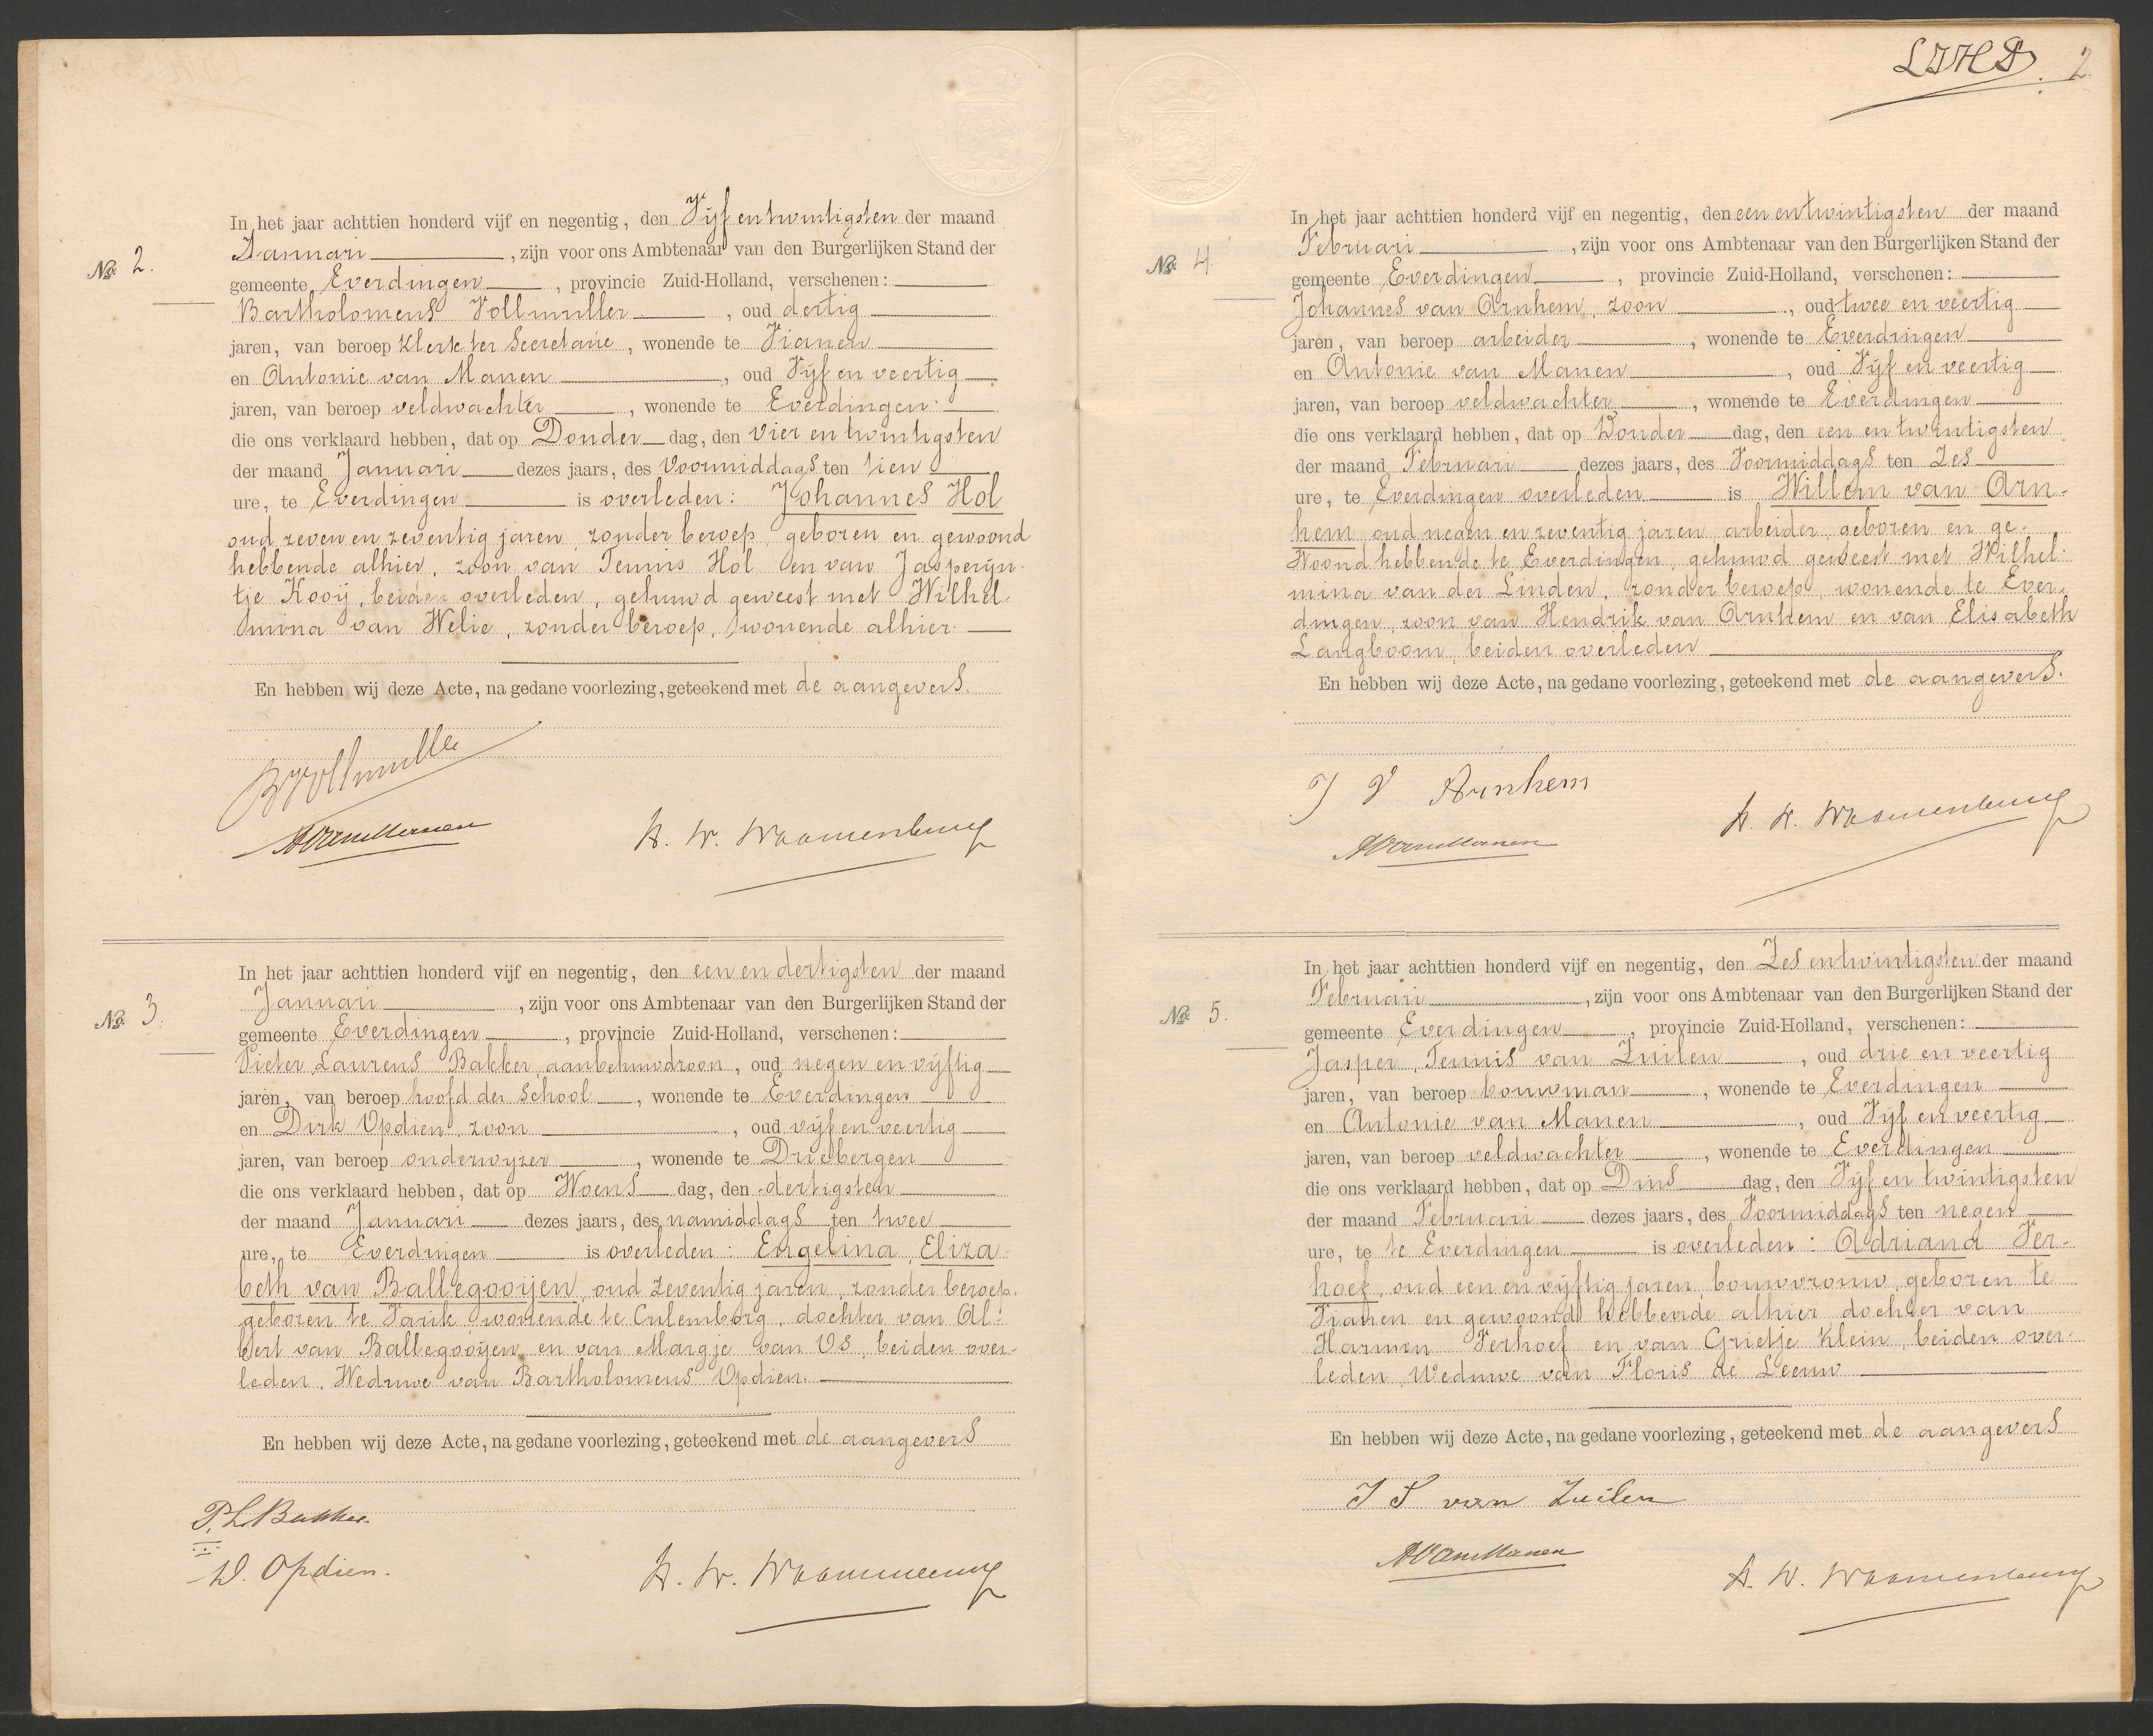 No. 2.
In het jaar achttien honderd vijf en negentig, den Vijf en twintigsten der maand
Januari, zijn voor ons Ambtenaar van den Burgerlijken Stand der
gemeente Everdingen, provincie Zuid-Holland, verschenen:
Bartholomeus Vollmuller, oud dertig
jaren, van beroep Klerk ter Secretarie, wonende te Vianen
en Antonie van Manen, oud Vijf en veertig
jaren, van beroep veldwachter, wonende te Everdingen
die ons verklaard hebben, dat op Donderdag, den Vier en twintigsten
der maand Januari dezes jaars, des Voormiddags ten tien
ure, te Everdingen is overleden: Johannes Hol
oud zeven en zeventig jaren, zonder beroep, geboren en gewoond
hebbende alhier, zoon van Teunis Hol en van Jasperijn-
tje Kooij, beiden overleden, gehuwd geweest met Wilhel-
mina van Welie, zonder beroep, wonende alhier.
En hebben wij deze Acte, na gedane voorlezing, geteekend met de aangevers.
B Vollmuller
A van Manen
No. 3.
In het jaar achttien honderd vijf en negentig, den een en dertigsten der maand
Januari, zijn voor ons Ambtenaar van den Burgerlijken Stand der
gemeente Everdingen, provincie Zuid-Holland, verschenen:
Pieter Laurens Bakker, aanbehuwdzoon, oud negen en vijftig
jaren, van beroep hoofd der School, wonende te Everdingen
en Dirk Opdien, zoon, oud vijf en veertig
jaren, van beroep onderwijzer, wonende te Driebergen
die ons verklaard hebben, dat op Woensdag, den dertigsten
der maand Januari dezes jaars, des namiddags ten twee
ure, te Everdingen is overleden: Engelina Eliza-
beth van Ballegooijen, oud zeventig jaren, zonder beroep,
geboren te Varik wonende te Culemborg, dochter van Al-
bert van Ballegooijen en van Margje van Os, beiden over-
leden, Weduwe van Bartholomeus Opdien.
En hebben wij deze Acte, na gedane voorlezing, geteekend met de aangevers
P. L. Bakker.
D. Opdien.
2.
No. 4.
In het jaar achttien honderd vijf en negentig, den een en twintigsten der maand
Februari, zijn voor ons Ambtenaar van den Burgerlijken Stand der
gemeente Everdingen, provincie Zuid-Holland, verschenen:
Johannes van Arnhem, zoon, oud twee en veertig
jaren, van beroep arbeider, wonende te Everdingen
en Antonie van Manen, oud Vijf en veertig
jaren, van beroep veldwachter, wonende te Everdingen
die ons verklaard hebben, dat op Donderdag, den een en twintigsten
der maand Februari dezes jaars, des Voormiddags ten Zes
ure, te Everdingen overleden is Willem van Arn-
hem oud negen en zeventig jaren arbeider, geboren en ge-
Woond hebbende te Everdingen, gehuwd geweest met Wilhel-
mina van der Linden, zonder beroep, wonende te Ever-
dingen, zoon van Hendrik van Arnhem en van Elisabeth
Langboom, beiden overleden
En hebben wij deze Acte, na gedane voorlezing, geteekend met de aangevers.
J V Arnhem
A van Manen
No. 5.
In het jaar achttien honderd vijf en negentig, den Zes en twintigsten der maand
Februari, zijn voor ons Ambtenaar van den Burgerlijken Stand der
gemeente Everdingen, provincie Zuid-Holland, verschenen:
Jasper Teunis van Zuilen, oud drie en veertig
jaren, van beroep bouwman, wonende te Everdingen
en Antonie van Manen, oud Vijf en veertig
jaren, van beroep veldwachter, wonende te Everdingen
die ons verklaard hebben, dat op Dinsdag, den Vijf en twintigsten
der maand Februari dezes jaars, des Voormiddags ten negen
ure, te te Everdingen is overleden: Adriana Ver-
hoef, oud een en vijftig jaren, bouwvrouw, geboren te
Vianen en gewoond hebbende alhier, dochter van
Harmen Verhoef en van Grietje Klein, beiden over-
leden, Weduwe van Floris de Leeuw
En hebben wij deze Acte, na gedane voorlezing, geteekend met de aangevers
J T van Zuilen
A van Manen